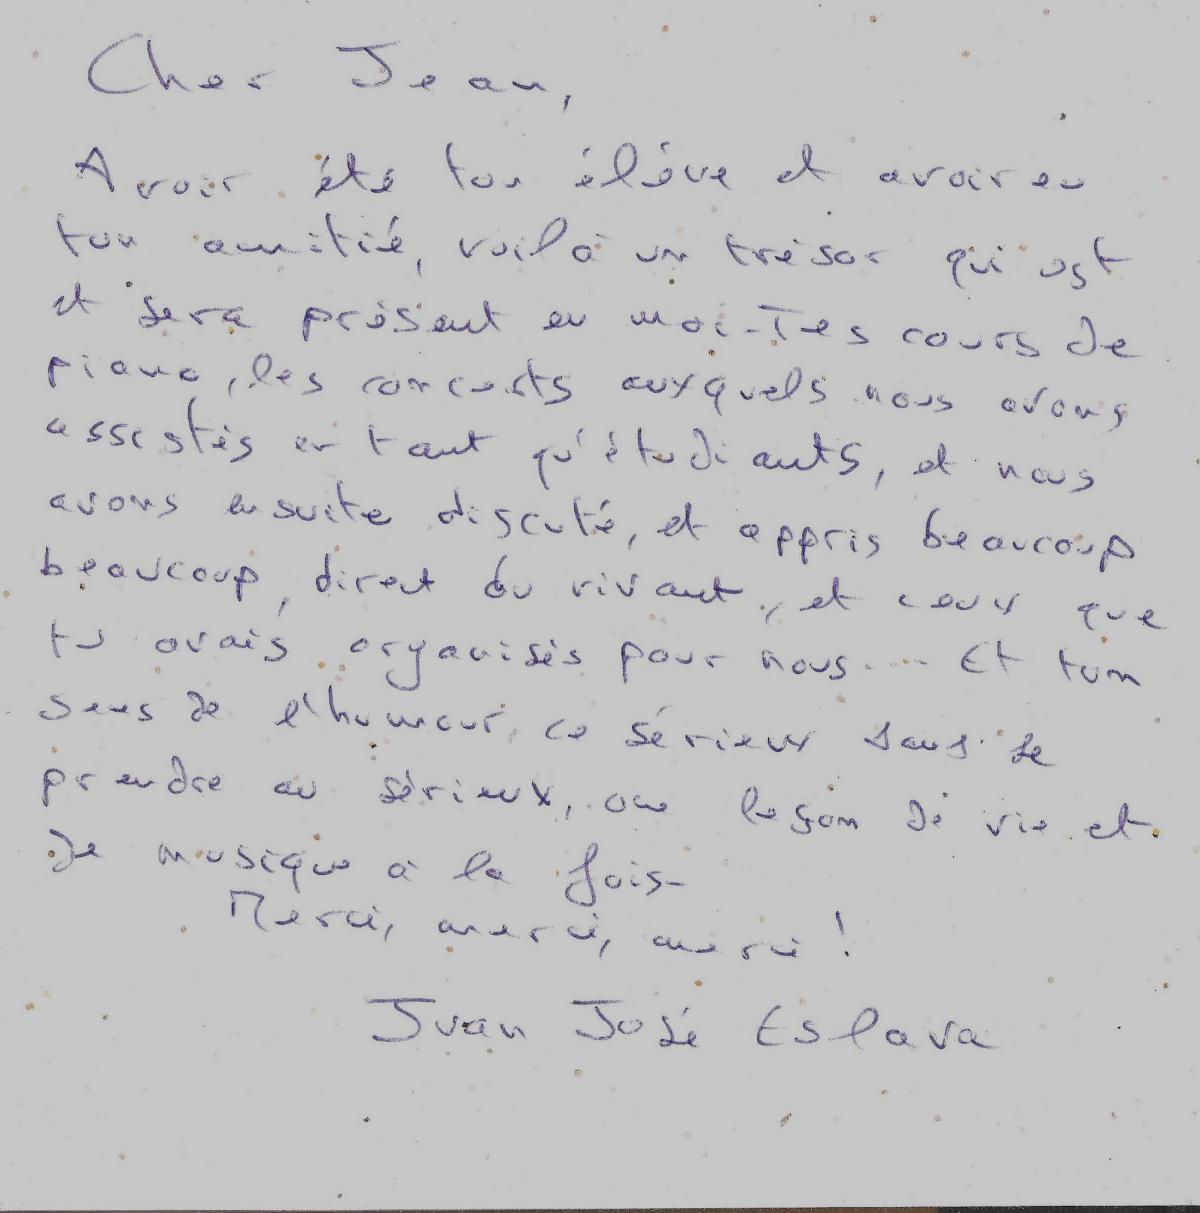 Cher Jean,
Avoir été ton élève et avoir eu
ton amitié, voilà un trésor qui est
et sera présent en moi - Tes cours de
piano, les concerts auxquels nous avons
assistés en tant qu'étudiants, et nous
avons ensuite discuté, et appris beaucoup
beaucoup, direct du vivant, et ceux que
tu avais organisés pour nous.... Et ton
sens de l'humour, ce sérieux sans se
prendre au sérieux, une leçon de vie et
de musique à la fois -
Merci, merci, merci !
Juan José Eslava